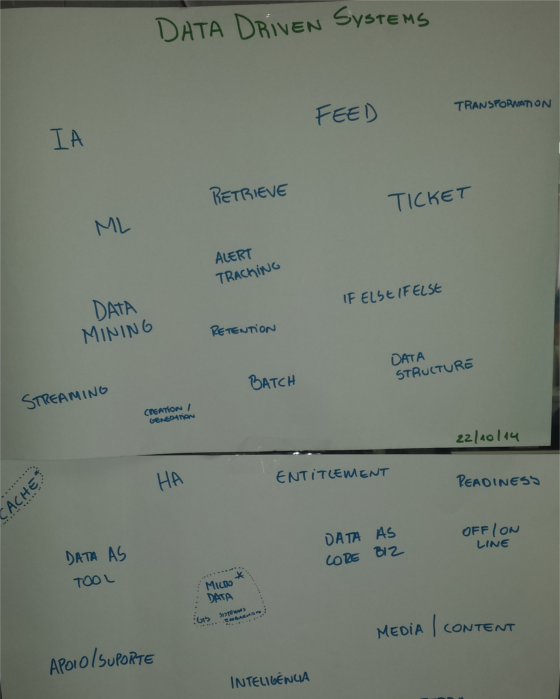 DATA DRIVEN SYSTEMS
FEED
TRANSFORMATION
IA
RETRIEVE
TICKET
ML
ALERT
TRACKING
DATA
MINING
IF ELSE IF ELSE
RETENTION
DATA
STRUCTURE
STREAMING
BATCH
CREATION /
GENERATION
22/10/14
CACHE*
HA
ENTITLEMENT
READINESS
DATA AS
TOOL
DATA AS
CORE BIZ
OFF/ON
LINE
MICRO *
DATA
MEDIA / CONTENT
APOIO/SUPORTE
INTELIGÊNCIA